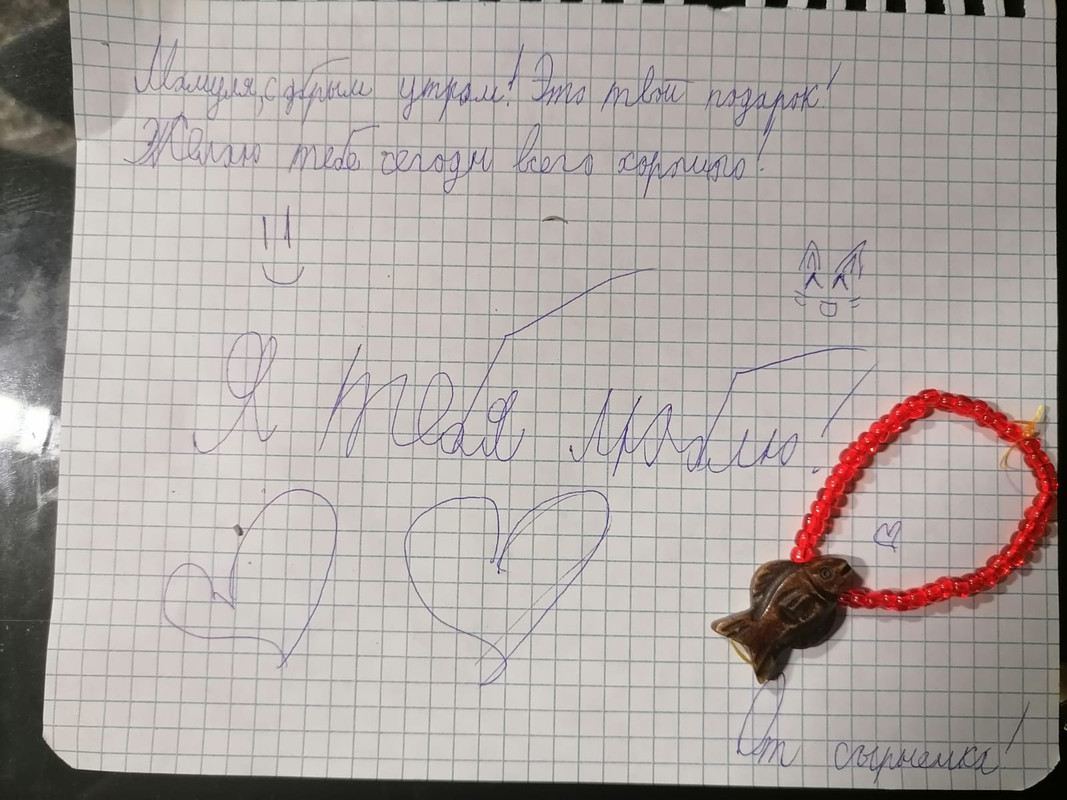 Мамуля, с дбрым утром! Это твой подарок!
Желаю тебе сегодн всего хорошого!
Я тебя люблю!
От сырнемка!